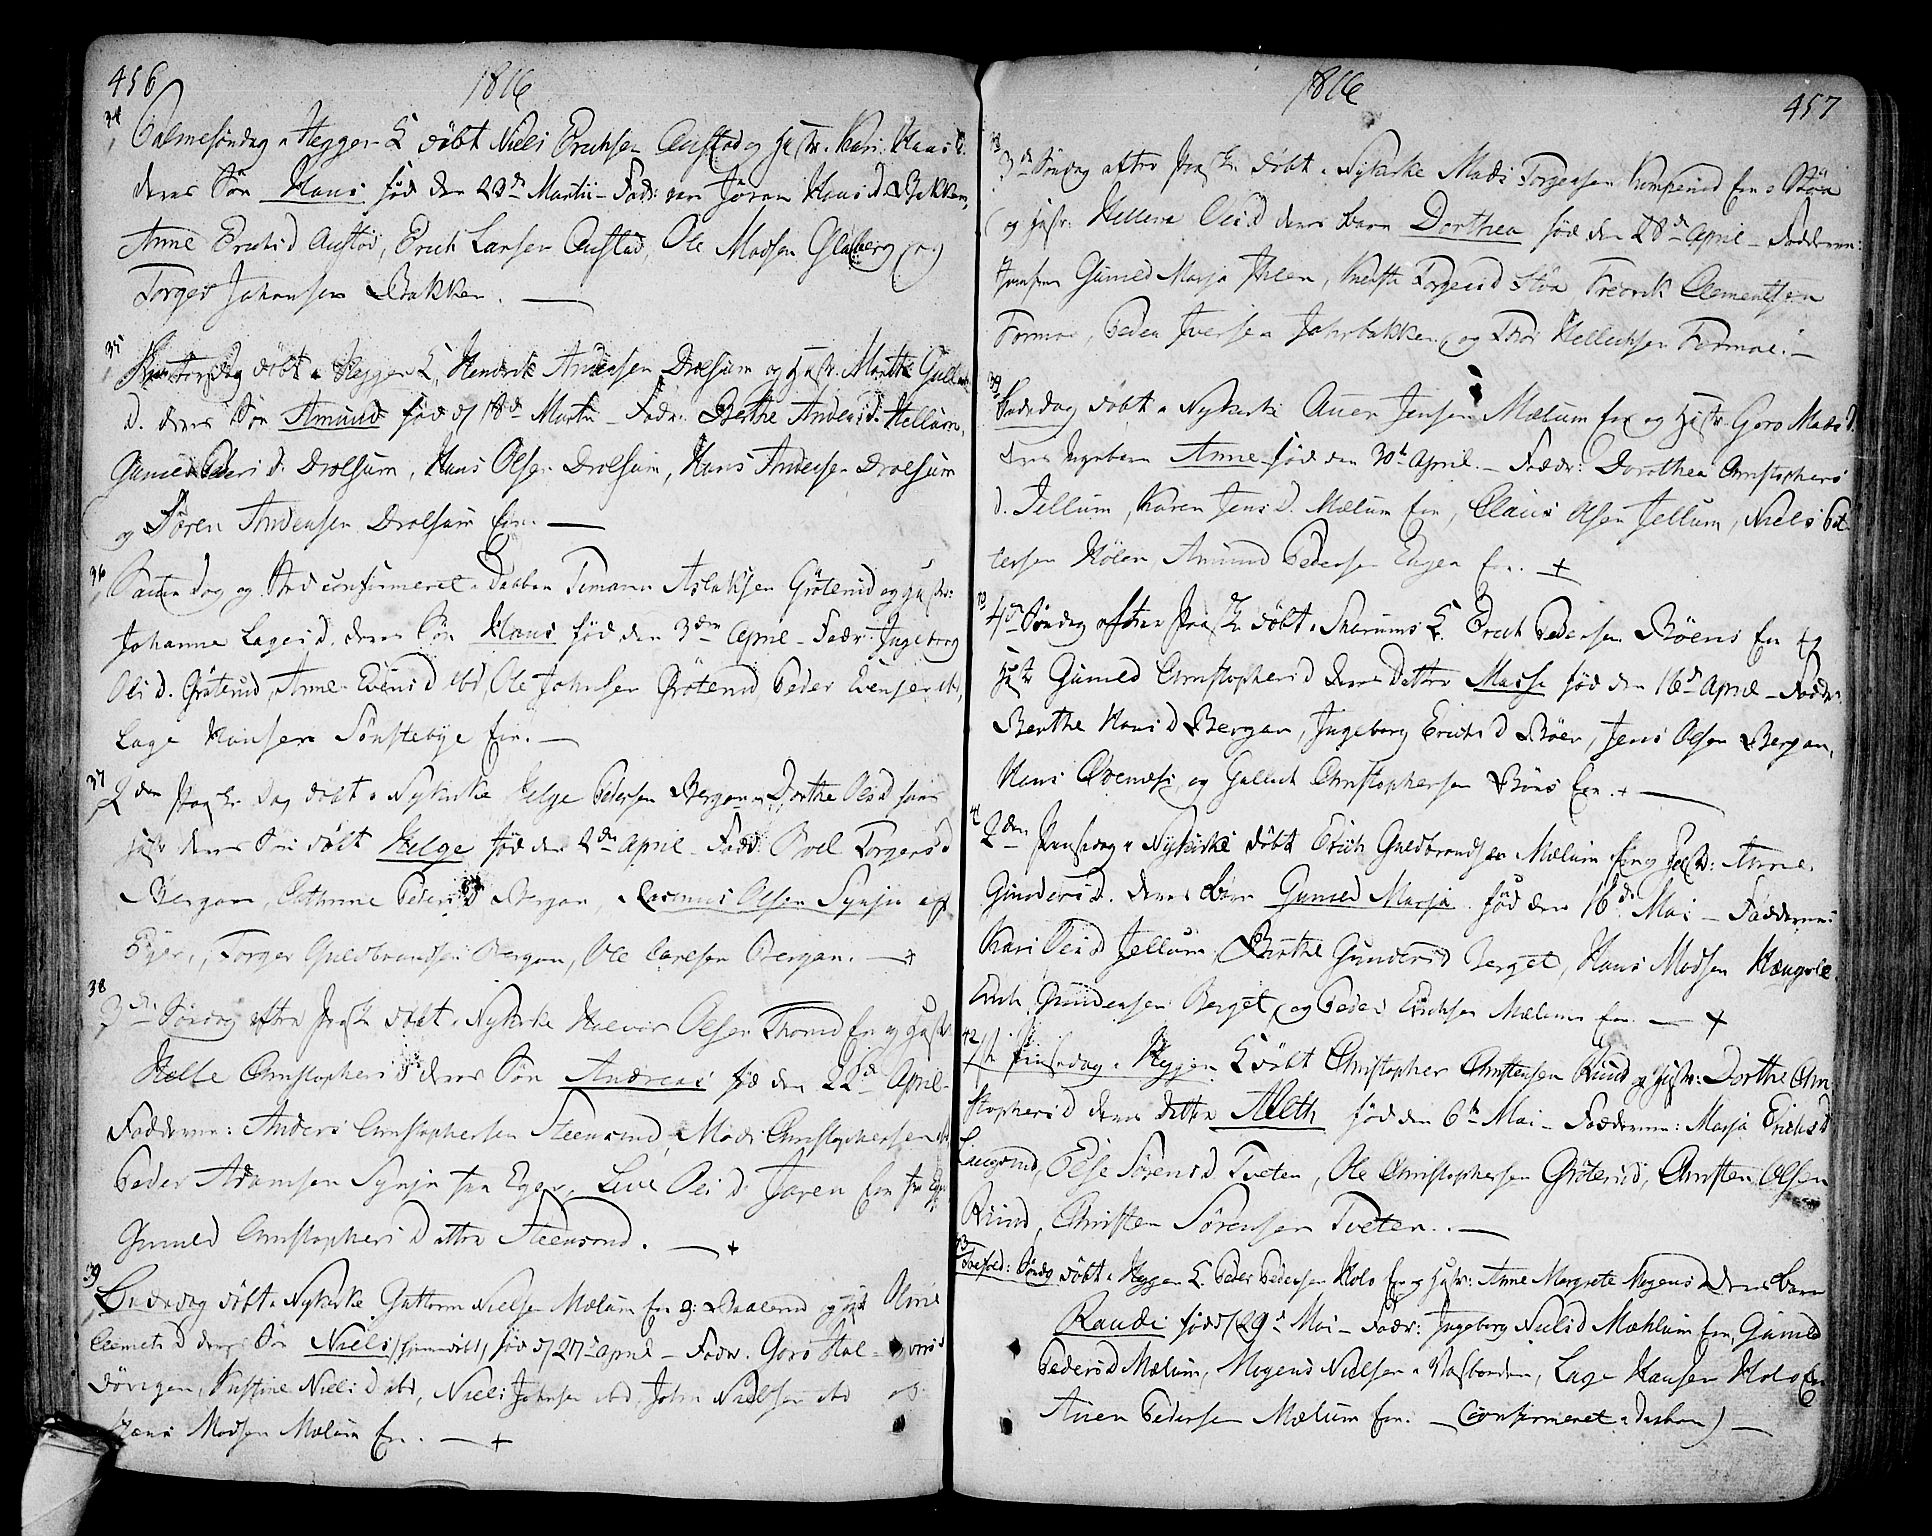 456
1816
34
Palmesöndag i Heggen K döbt Niels Erichsen Austad og Hustr. Kari Hans D.
deres Sön Hans föd den 23de Martii - Fadd: var Jöran Hans D Bakken,
Anne Erichs D Austad, Erich Larsen Austad, Ole Madsen Glaberg og
Torger Johansen Bakken. —
35
döbt i Heggen K, Hendrik Andersen Drolsum og Hustr. Marthe Gulbr
D. deres Sön Amund föd d 18de Martii - Fadr: Berthe Anders D. Hellum,
Gunild Peders D. Drolsum, Hans Olsen Drolsum, Hans Andersen Drolsum
og Sören Andersen Drolsum Eier. —
36
Samme Dag og Sted confirmeret i Daaben Temann Aslaksen Gröterud og Hustr:
Johanne Lages D. deres Sön Hans föd den 3den April - Fadr: Ingeborg
Ols D. Gröterud, Anne Evens D ibd, Ole Johnsen Gröterud, Peder Evensen ibd,
Lage Hansen Sönstebye Eier. —
37
2den Paaske Dag döbt i Nykirke Helge Pedersen Bergan og Dorthe Ols D hans
Hustr deres Sön döbt Helge föd den 2den April - Fadd: Boel Torgers D
Bergan, Cathrine Peders D Bergan, Rasmus Olsen Synju af
Eger, Torger Guldbrandsen Bergan, Ole Carlsen Bergan. — +
38
3die Söndag efter Paaske döbt i Nykirke Halvor Olsen Tromd Eie og Hustr
Helle Christophers D deres Sön Andreas föd den 22de April -
Fadderne: Anders Christophersen Steensrud, Mads Christophersen ibd
Peder Adamsen Synju fra Eger, Live Ols D. Jaren Eie fra Eger
Gunild Christophers Datter Steensrud. — +
39
Bededag döbt i Nykirke Guttorm Nielsen Mælum Eie og Hustr Oline
Clemets D deres Sön Niels (hiemmedöbt) föd d 27de April - Fadr. Goro Halvors D
Dövigen, Kirstine Niels D ibd, Niels Johnsen ibd, John Nielsen ibd og
Hans Madsen Mælum Eie. — +
1816
457
3die Söndag efter Paaske döbt i Nykirke Mads Torgersen Komperud Eie Stöa
og Hustr: Hellene Ols D deres Barn Dorthea föd den 28de April - Fadderne:
Jomfrue Gunild Marja Ihlen, Kirstie Torgers D Stöa, Fredrik Clementsen
Formoe, Peder Iversen Jahrbakken, og Thor Hellechsen Formoe. —
39
Bededag döbt i Nykirke Auen Jensen Mælum Eie og Hustr Goro Mads D
deres Pigebarn Anne föd den 30te April. - Faddr: Dorothea Christophers
D. Jellum, Karen Jens D. Mælum Eie, Claus Olsen Jellum, Niels Pet
tersen Hölen, Amund Pedersen Engen Eie. +
4de Söndag efter Paaske döbt i Snarums K. Erich Pedersen Böens Eie og
Hustr Gunild Christophers D deres Datter Masse föd den 16de April - Faddr:
Berthe Hans D Bergan, Ingeborg Erichs D Böen, Jens Olsen Bergan,
Hans og Gullech Christophersen Böns Eie. + —
41
2den Pinsedag i Nykirke döbt Erich Guldbrandsen Mælum Eie og Hustr: Anne
Gunders D. deres Barn Gunild Marja föd den 16de Mai - Fadderne:
Kari Ols D Jellum, Berthe Gunders D Berget, Hans Madsen Haugsle
Erich Gundersen Berget og Peder Erichsen Mælum Eie. — +
42
1ste Pinsedag i Heggen K döbt Christopher Christensen Ruud og Hustr: Dorthe Chri
stophers D deres Datter Aleth föd den 6te Mai - Fadderne: Marja Erichs D
Laugerud, Else Sörens D Tveten, Ole Christophersen Gröterud, Christen Olsen
Ruud, Christen Sörensen Tveten. —
43
Trefold: Söndg döbt i Heggen K. Peder Pedersen Holo Eie og Hustr: Anne Margrete Mogens D deres Barn
Randi föd d 29de Mai - Fadr: Ingeborg Niels D Mæhlum Eie, Gunild
Peders D Mælum, Mogens Nielsen i Nasbonden, Lage Hansen Holo Eie
Auen Pedersen Mælum Eie. — (Confirmeret i Daaben) —